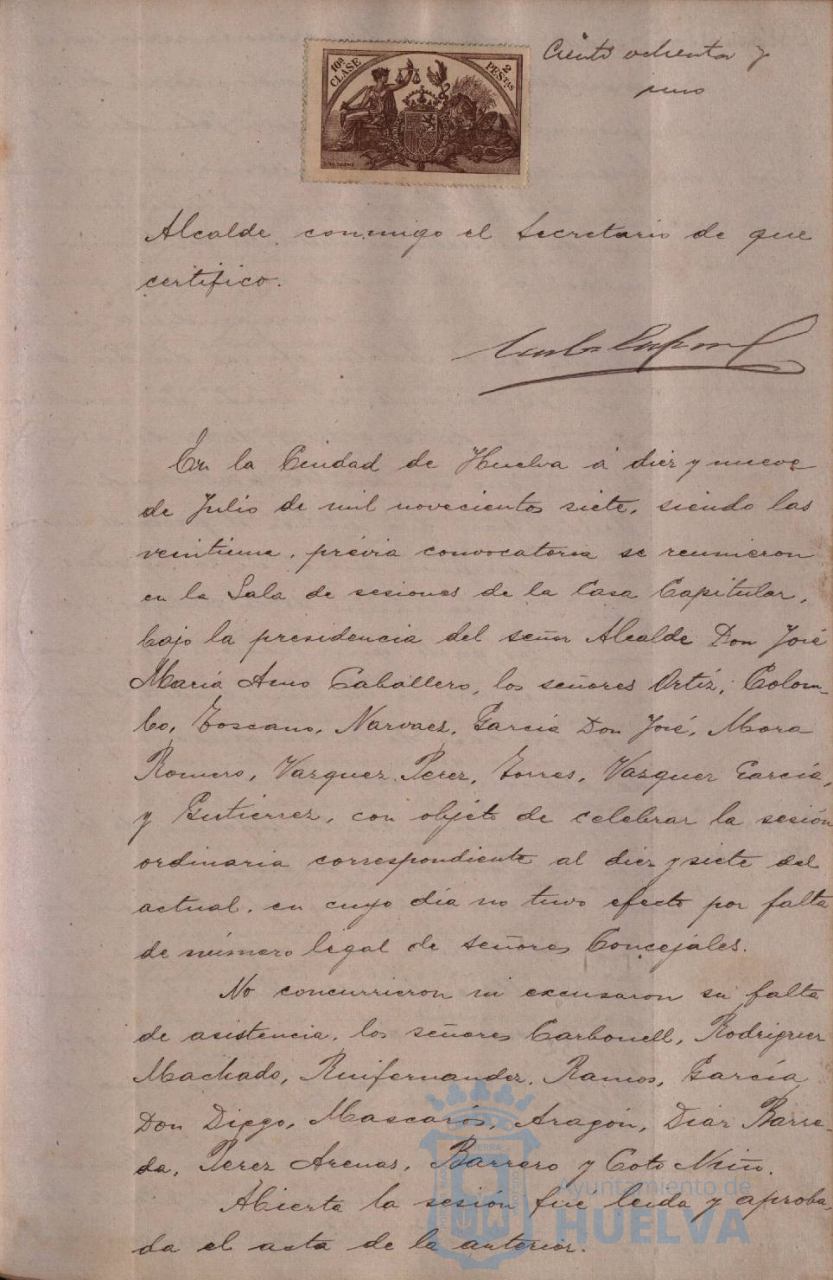 Ciento ochenta y
uno
10ª CLASE
2 PESTAS
Alcalde conmigo el Secretario de que
certifico.
En la Ciudad de Huelva á diez y nueve
de Julio de mil novecientos siete, siendo las
veintiuna, prévia convocatoria se reunieron
en la Sala de sesiones de la Casa Capitular,
bajo la presidencia del señor Alcalde Don José
María Amo Caballero, los señores Ortíz, Colom-
bo, Toscano, Narvaez, García Don José, Mora
Romero, Vazquez Perez, Torres, Vazquez García,
y Gutierrez, con objeto de celebrar la sesión
ordinaria correspondiente al diez y siete del
actual, en cuyo día no tuvo efecto por falta
de número legal de señores Concejales.
No concurrieron ni excusaron su falta
de asistencia, los señores Carbonell, Rodriguez
Machado, Ruifernandez, Ramos, García
Don Diego, Mascarós, Aragón, Diaz Barre-
da, Perez Arenas, Barrero y Coto Niño.
Abierta la sesión fué leida y aproba-
da el acta de la anterior.
Ayuntamiento de
HUELVA